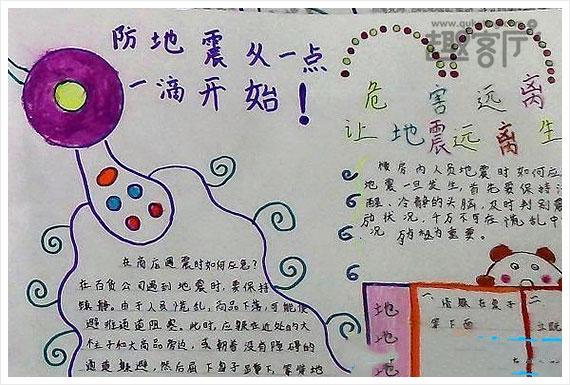 www.quk
趣客厅
防地震从一点
一滴开始！
危害远离
让地震远离生
楼房内人员地震时如何应
地震一旦发生,首先要保持清
醒、冷静的头脑,及时判别震
动状况,千万不可在慌乱中
况,为重要。
在商店遇震时如何应急?
在百货公司遇到地震时,要保持
镇静。由于人员慌乱,商品下落,可能使
避难通道阻塞。此时,应躲在近处的大
柱子和大商品旁边,或朝着没有障碍的
通道躲避,然后屈下身子蹲下,等待地
地
地
地
一、躲在桌子
等下面
二
立